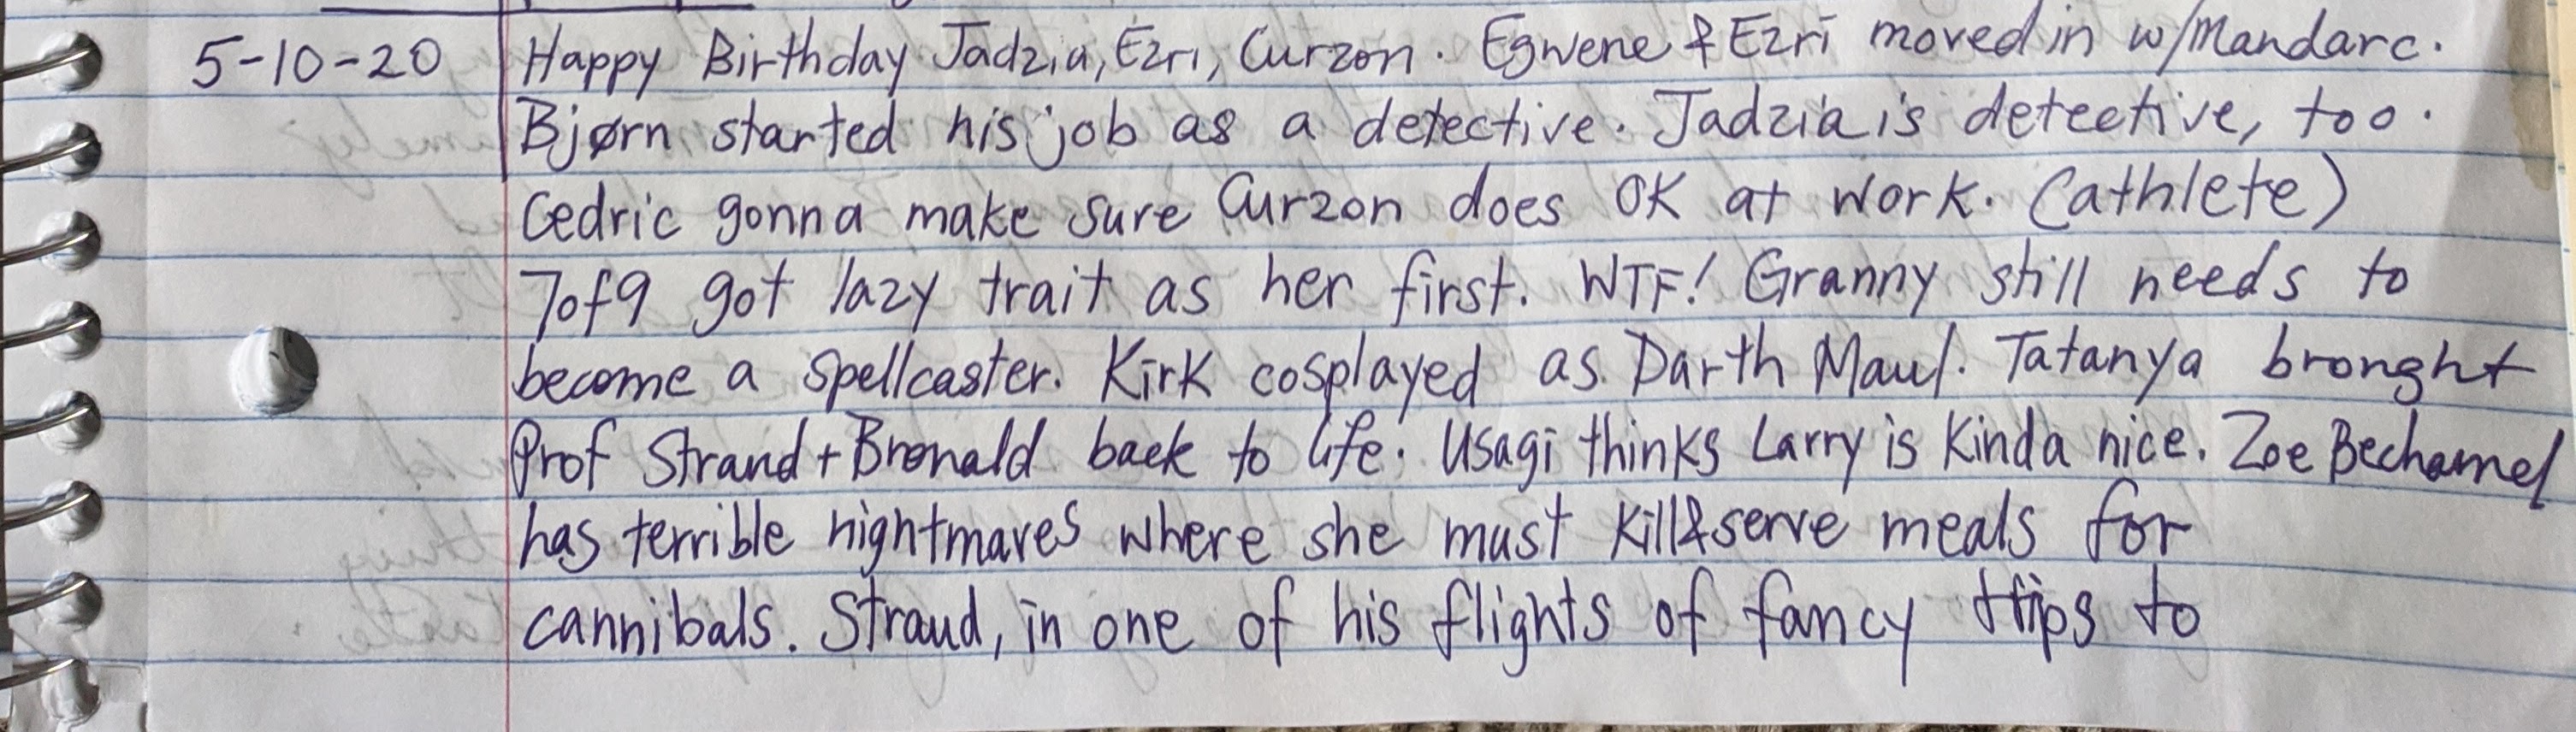 5-10-20 Happy Birthday Jadzia, Ezri, Curzon. Egwene & Ezri moved in w/Mandarc.
Bjørn started his job as a detective. Jadzia is detective, too.
Cedric gonna make sure Curzon does OK at work. (athlete)
7of9 got lazy trait as her first. WTF! Granny still needs to
become a spellcaster. Kirk cosplayed as Darth Maul. Tatanya brought
Prof Strand + Bronald back to life. Usagi thinks Larry is kinda nice. Zoe Bechamel
has terrible nightmares where she must kill & serve meals for
cannibals. Straud, in one of his flights of fancy trips to